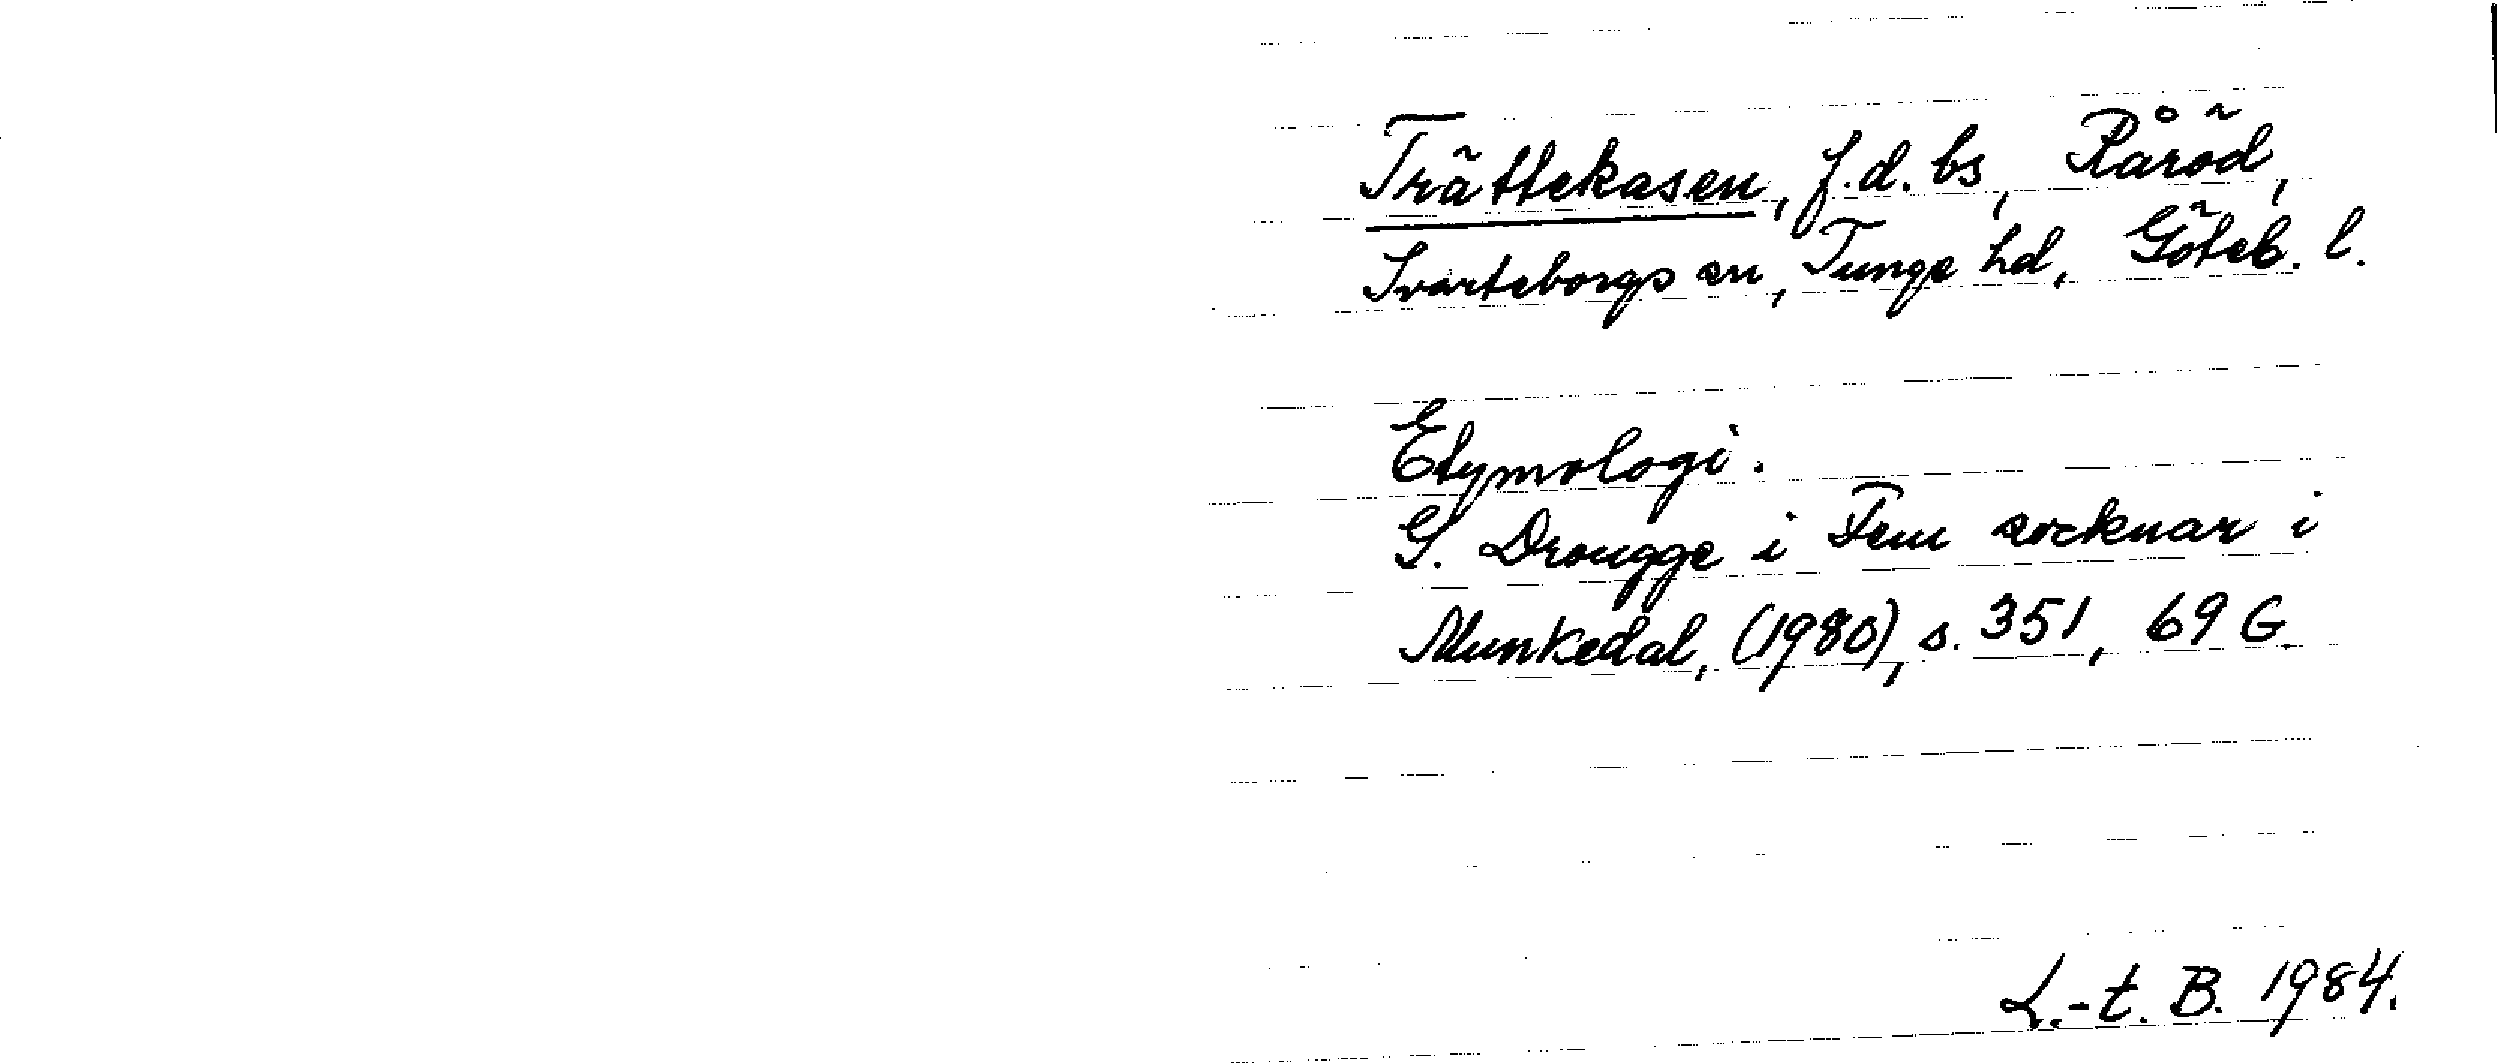 Trättekasen, f.d. bs, Råröd,
Svarteborgs sn, Tunge hd, Göteb. l.
Etymologi.
G. Drougge i Fem socknar i
Munkedal, (1980), s. 351, 69 G.
L.-t. B. 1984.